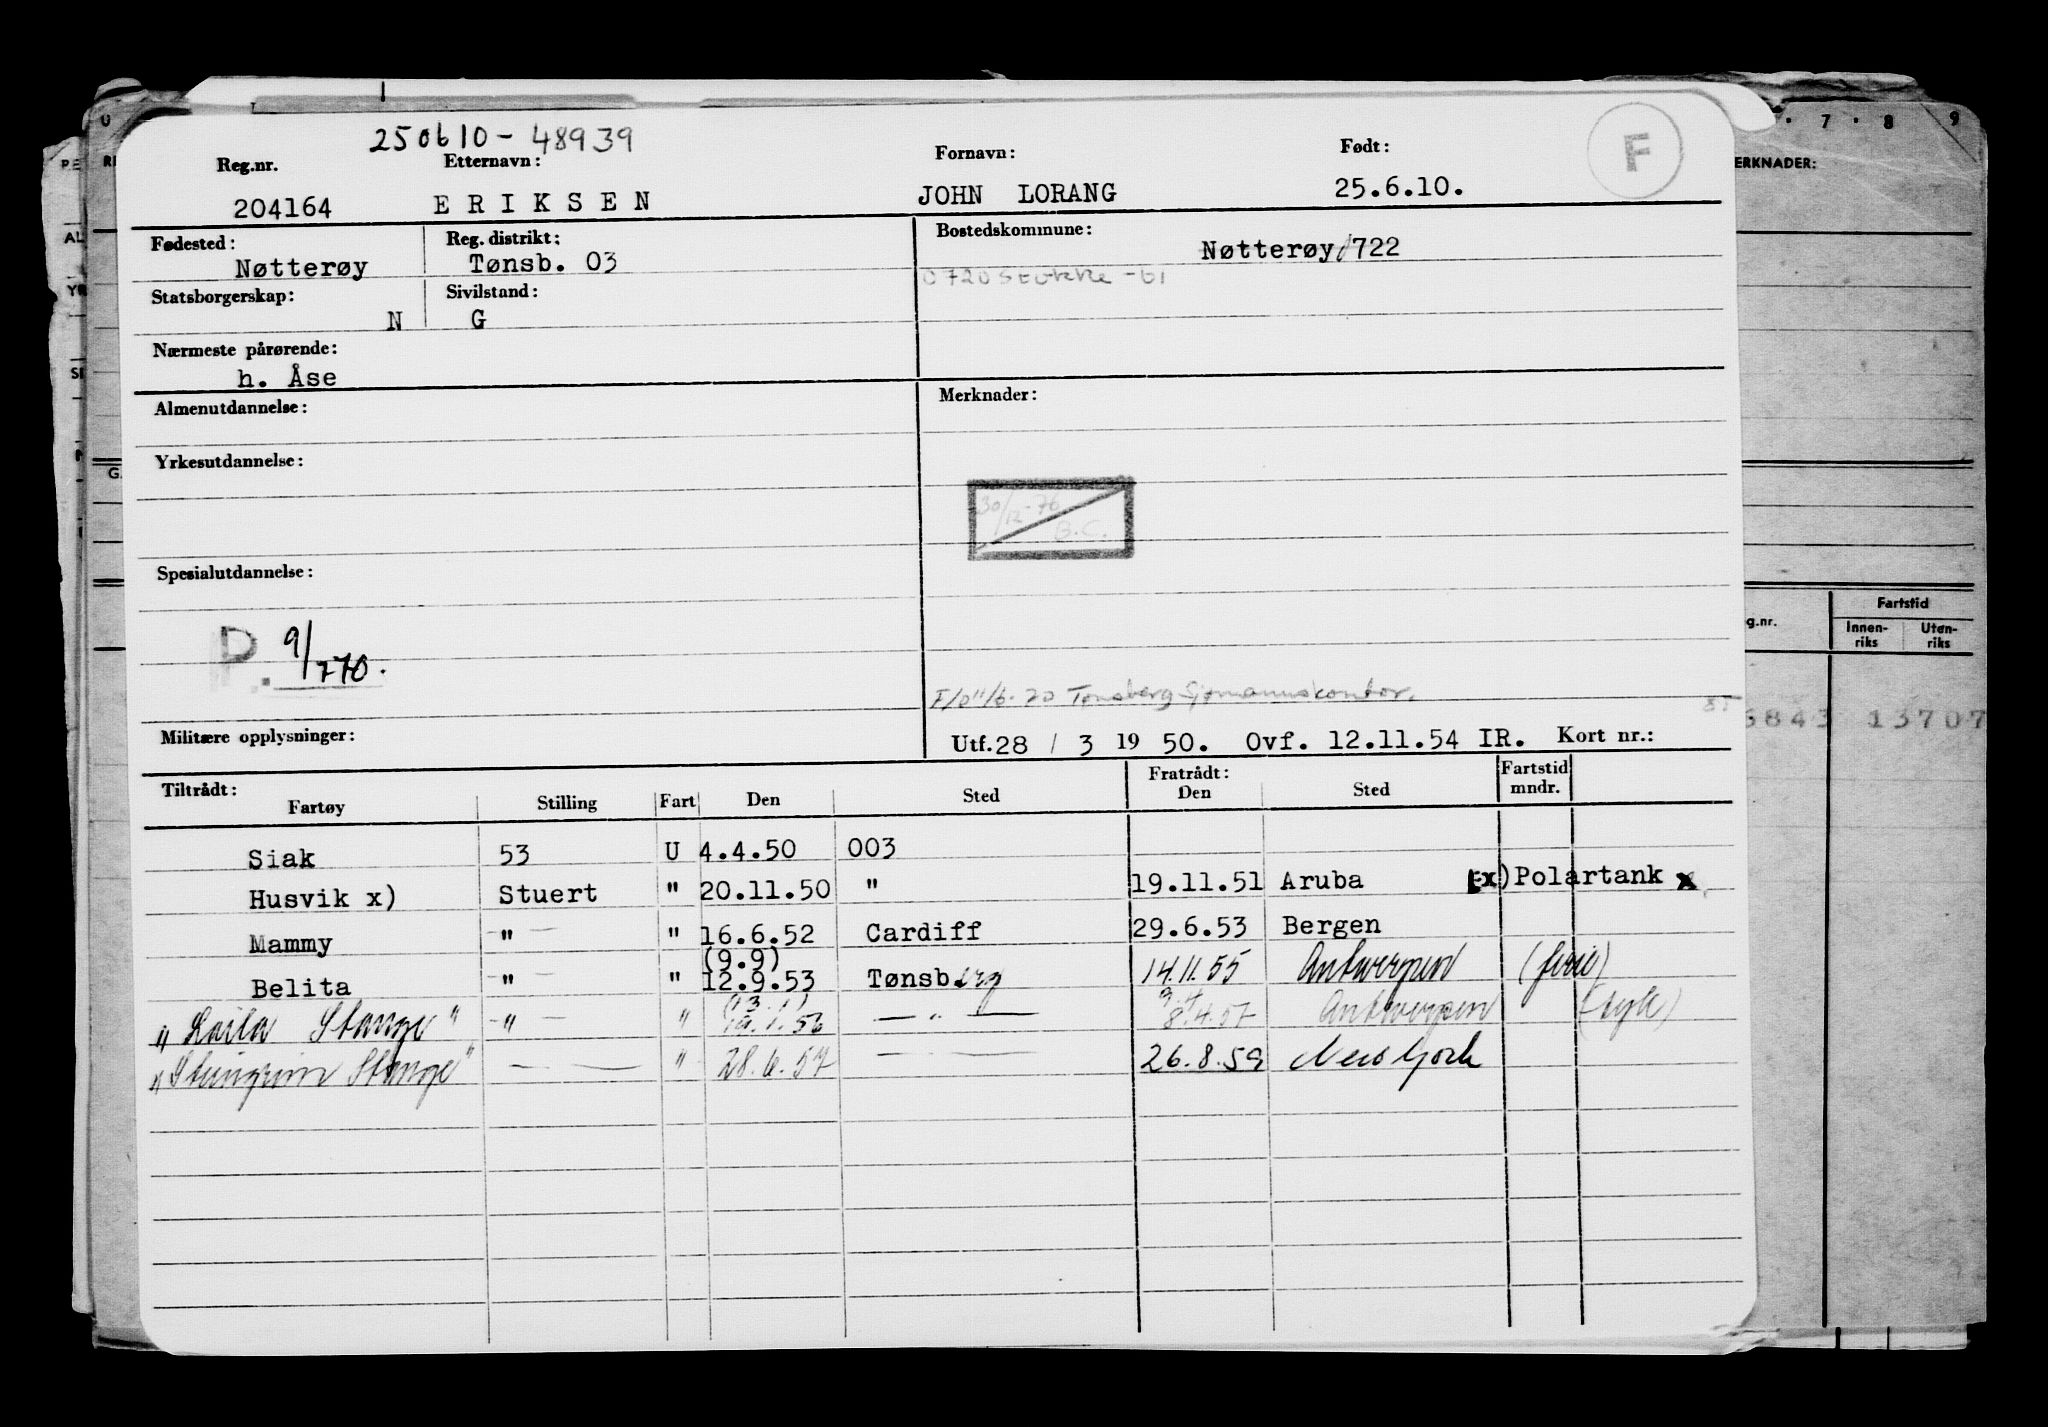 250610-48939
Reg.nr. Etternavn: Fornavn: Født: F
204164 ERIKSEN JOHN LORANG 25.6.10.
Fødested: Reg. distrikt: Bostedskommune:
Nøtterøy Tønsb. 03 Nøtterøy 722
0720 Stokke -61
Statsborgerskap: Sivilstand:
N G
Nærmeste pårørende:
h. Åse
Almenutdannelse: Merknader:
Yrkesutdannelse:
30/12-76
B.C.
Spesialutdannelse:
P. 9/770.
Tønsberg Sjømannskontor.
Militære opplysninger: Utf. 28 / 3 19 50. Ovf. 12.11.54 IR. Kort nr.:
Tiltrådt: Fratrådt: Fartstid
Fartøy Stilling Fart Den Sted Den Sted mndr.
Siak 53 U 4.4.50 003
Husvik x) Stuert " 20.11.50 " 19.11.51 Aruba (x)Polartank x
Mammy " — " 16.6.52 Cardiff 29.6.53 Bergen
(9.9)
Belita " — " 12.9.53 Tønsberg 14.11.55 Antwerpen (ferie)
"Laila Stange" — " — " 56 — " — 8.4.57 Antwerpen
"Steingrim Stange" — — " 28.6.57 — — 26.8.59 New York
ERKNADER:
7 . 8 9
g.nr. Fartstid
Innenriks Utenriks
6843 13707